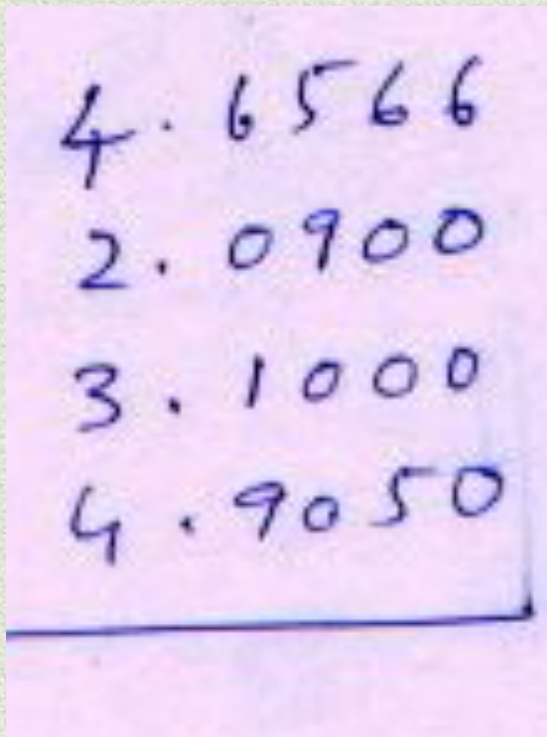 4.6566
2.0900
3.1000
4.9050